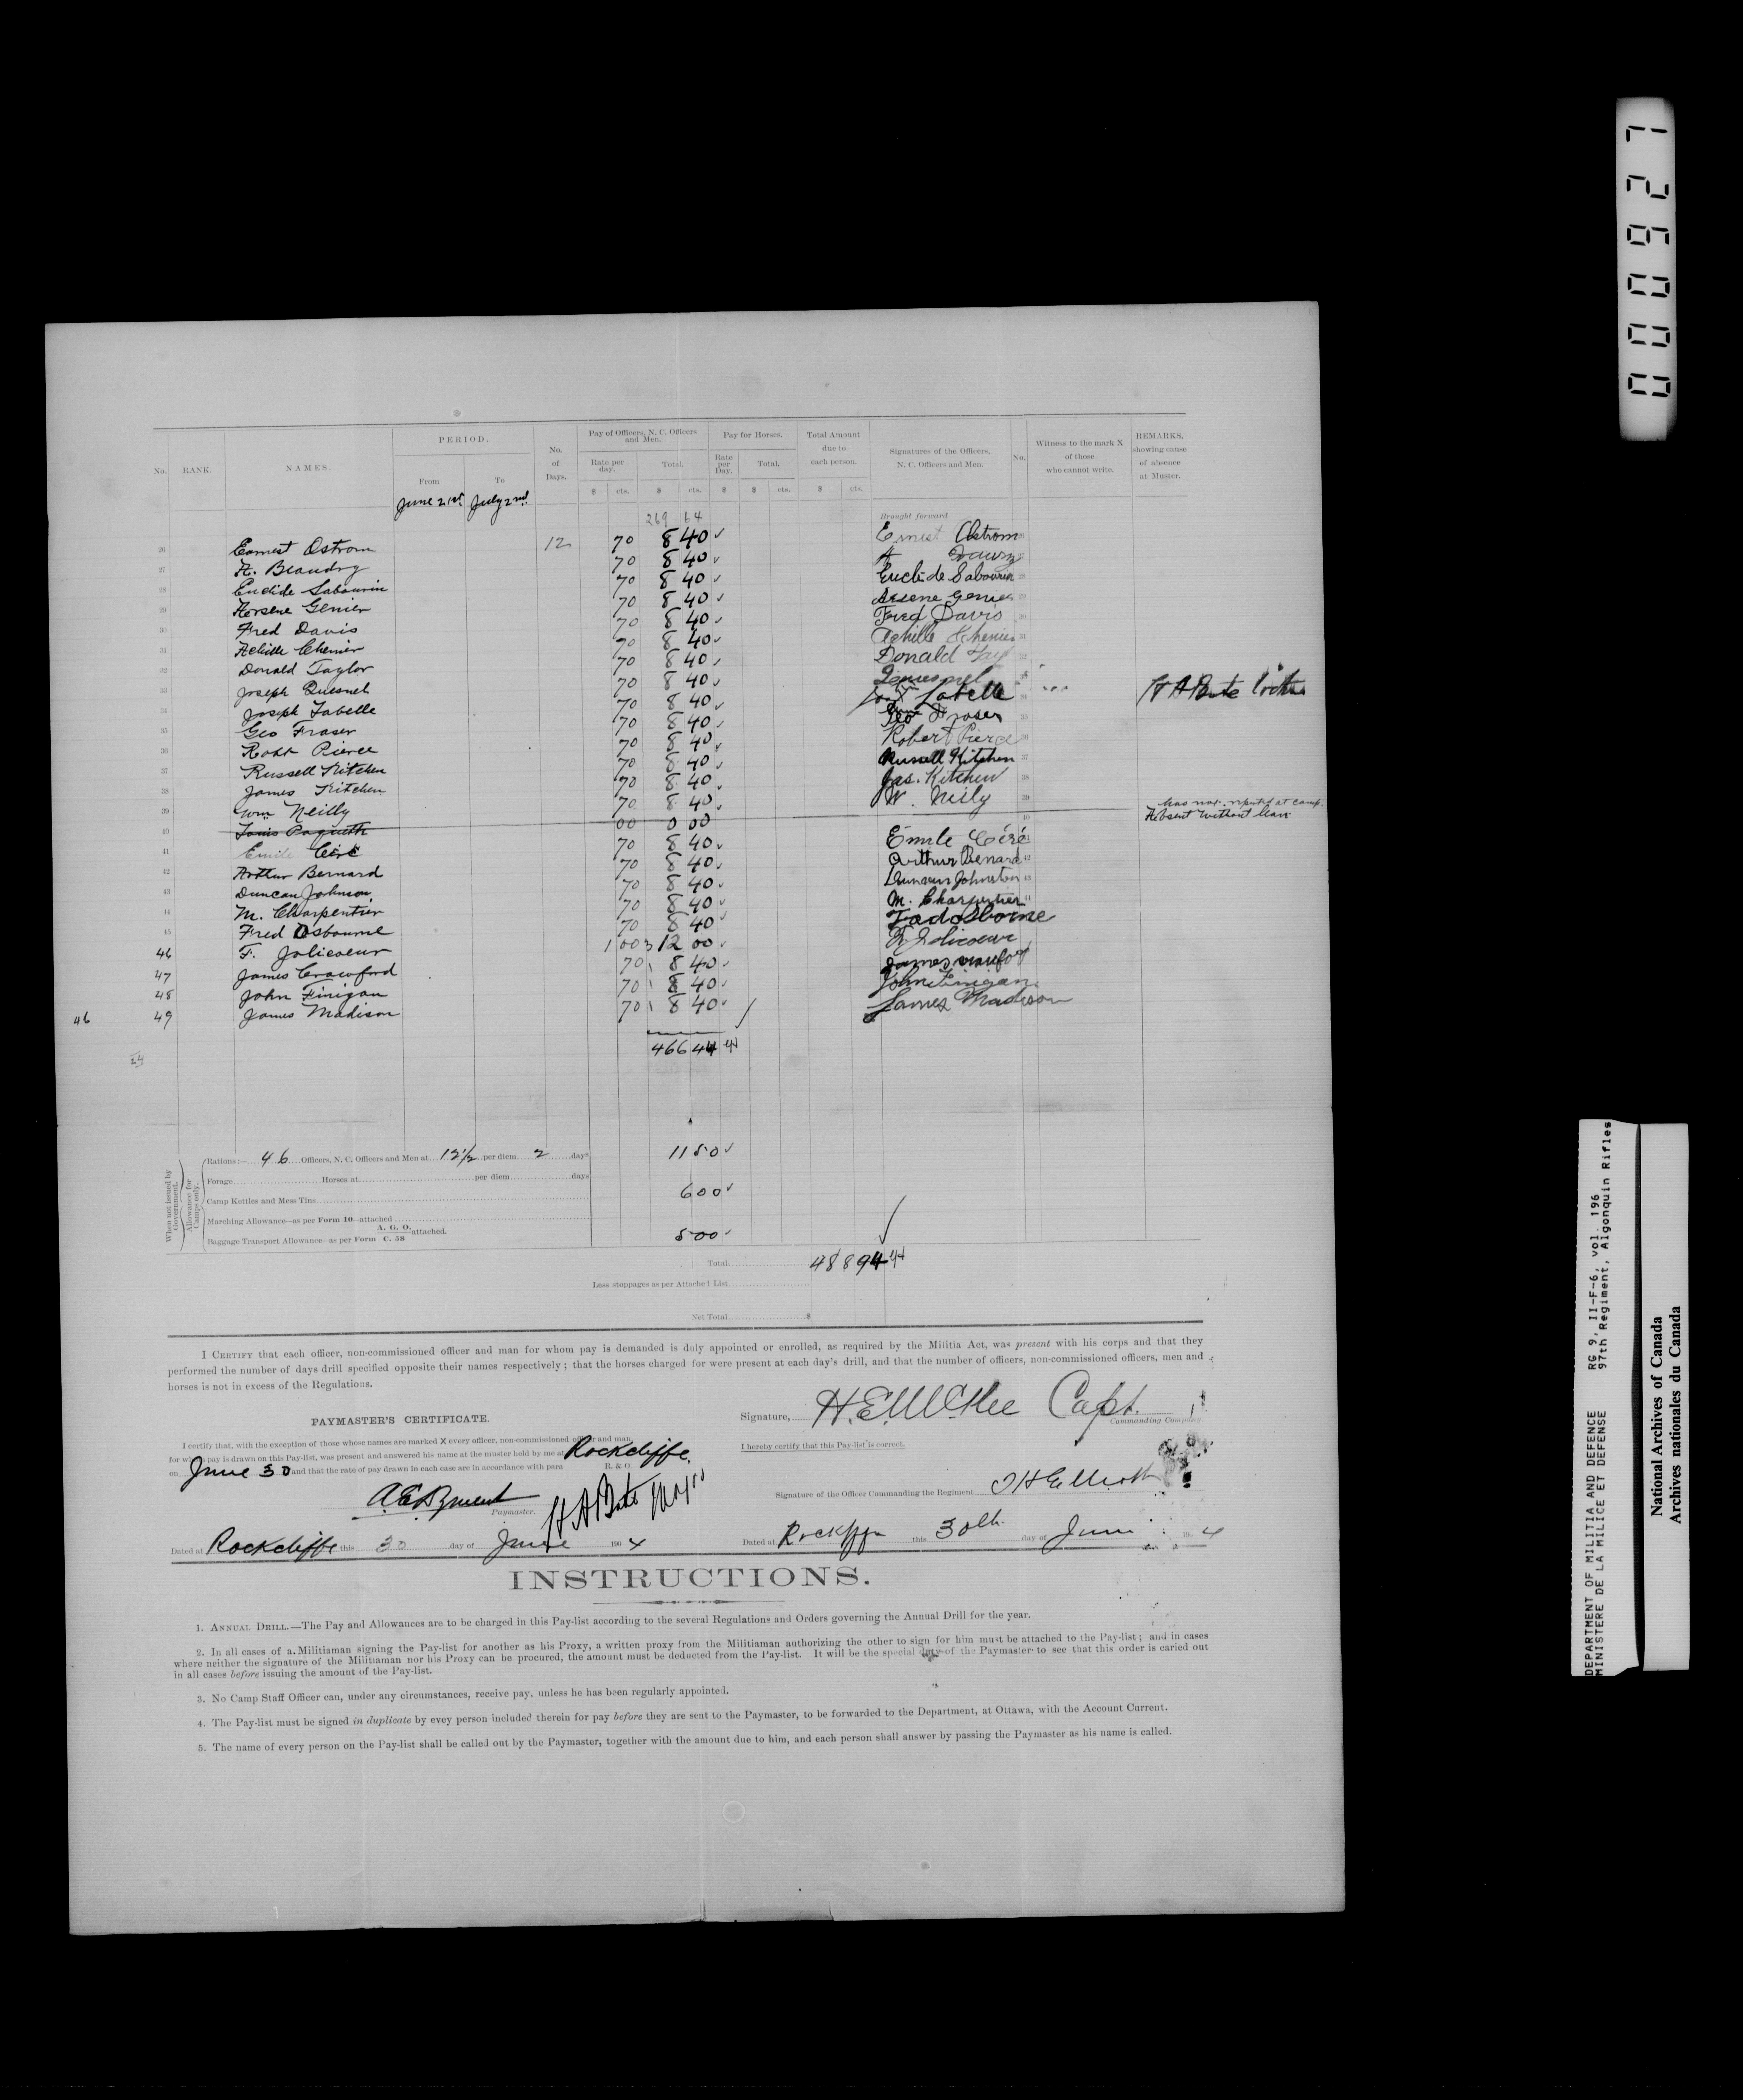 No. RANK. NAMES. PERIOD. From To No. of Days. Pay of Officers, N. C. Officers and Men. Rate per day. Total. Pay for Horses. Rate per Day. Total. Total Amount due to each person. Signatures of the Officers, N. C. Officers and Men. No. Witness to the mark X of those who cannot write. REMARKS. showing cause of absence at Muster.
$ cts. $ cts. $ $ cts. $ cts.
June 21st July 2nd
269 64 Brought forward
26 Earnest Ostrom 12 70 8 40 Ernest Ostrom
27 A. Beaudry 70 8 40 A
28 Euclide Sabourin 70 8 40 Euclide Sabourin 28
29 Arsene Genier 70 8 40 Arsene Genier
30 Fred Davis 70 8 40 Fred Davis 30
31 Achille Chenier 70 8 40 Achille Chenier 31
32 Donald Taylor 70 8 40 Donald Tayl 32
33 Joseph Quesnel 70 8 40 Quesnel
34 Joseph Labelle 70 8 40 Jos X Labelle 34 H A Bate
35 Geo Fraser 70 8 40 Geo Fraser 35
36 Robt Pierce 70 8 40 Robert Pierce 36
37 Russell Kitchen 70 8 40 Russell Kitchen 37
38 James Kitchen 70 8 40 Jas. Kitchen 38
39 Wm Neilly 70 8 40 W. Neily 39
has not reported at camp.
40 Louis Paquette 00 0 00 40 Absent without leave
41 Emile Céré 70 8 40 Emile Céré
42 Arthur Bernard 70 8 40 Arthur Benard 42
43 Duncan Johnson 70 8 40 Duncan Johnston 43
44 M. Charpentier 70 8 40 M. Charpentier 44
45 Fred Osbourne 70 8 40 Fred Osborne
46 F. Jolicoeur 1 00 12 00 F Jolicoeur
47 James Crawford 70 8 40 James
48 John Finigan 70 8 40 John Finigan
46 49 James Madison 70 8 40 James Madison
466 44 44
24
When not issued by Government.
Allowance for Camps only.
Rations:— 46 Officers, N. C. Officers and Men at 12½ per diem 2 days 11 50
Forage Horses at per diem days
Camp Kettles and Mess Tins 6 00
Marching Allowance—as per Form 10—attached
Baggage Transport Allowance—as per Form A. G. O. C. 58 attached. 5 00
Total 488 94 44
Less stoppages as per Attached List
Net Total $
I CERTIFY that each officer, non-commissioned officer and man for whom pay is demanded is duly appointed or enrolled, as required by the Militia Act, was present with his corps and that they
performed the number of days drill specified opposite their names respectively; that the horses charged for were present at each day's drill, and that the number of officers, non-commissioned officers, men and
horses is not in excess of the Regulations.
Signature, H.E. McKee Capt.
Commanding Company.
PAYMASTER'S CERTIFICATE.
I certify that, with the exception of those whose names are marked X every officer, non-commissioned officer and man,
for whom pay is drawn on this Pay-list, was present and answered his name at the muster held by me at Rockcliffe
on June 30 and that the rate of pay drawn in each case are in accordance with para R. & O.
Paymaster. H A Bate Major
Dated at Rockcliffe this 30 day of June 190 4
I hereby certify that this Pay-list is correct.
Signature of the Officer Commanding the Regiment
Dated at this 30th day of June 190 4
INSTRUCTIONS.
1. ANNUAL DRILL.—The Pay and Allowances are to be charged in this Pay-list according to the several Regulations and Orders governing the Annual Drill for the year.
2. In all cases of a Militiaman signing the Pay-list for another as his Proxy, a written proxy from the Militiaman authorizing the other to sign for him must be attached to the Pay-list; and in cases
where neither the signature of the Militiaman nor his Proxy can be procured, the amount must be deducted from the Pay-list. It will be the special duty of the Paymaster to see that this order is caried out
in all cases before issuing the amount of the Pay-list.
3. No Camp Staff Officer can, under any circumstances, receive pay, unless he has been regularly appointed.
4. The Pay-list must be signed in duplicate by evey person included therein for pay before they are sent to the Paymaster, to be forwarded to the Department, at Ottawa, with the Account Current.
5. The name of every person on the Pay-list shall be called out by the Paymaster, together with the amount due to him, and each person shall answer by passing the Paymaster as his name is called.
DEPARTMENT OF MILITIA AND DEFENCE RG 9, II-F-6, vol. 196
MINISTERE DE LA MILICE ET DEFENSE 97th Regiment, Algonquin Rifles
National Archives of Canada
Archives nationales du Canada